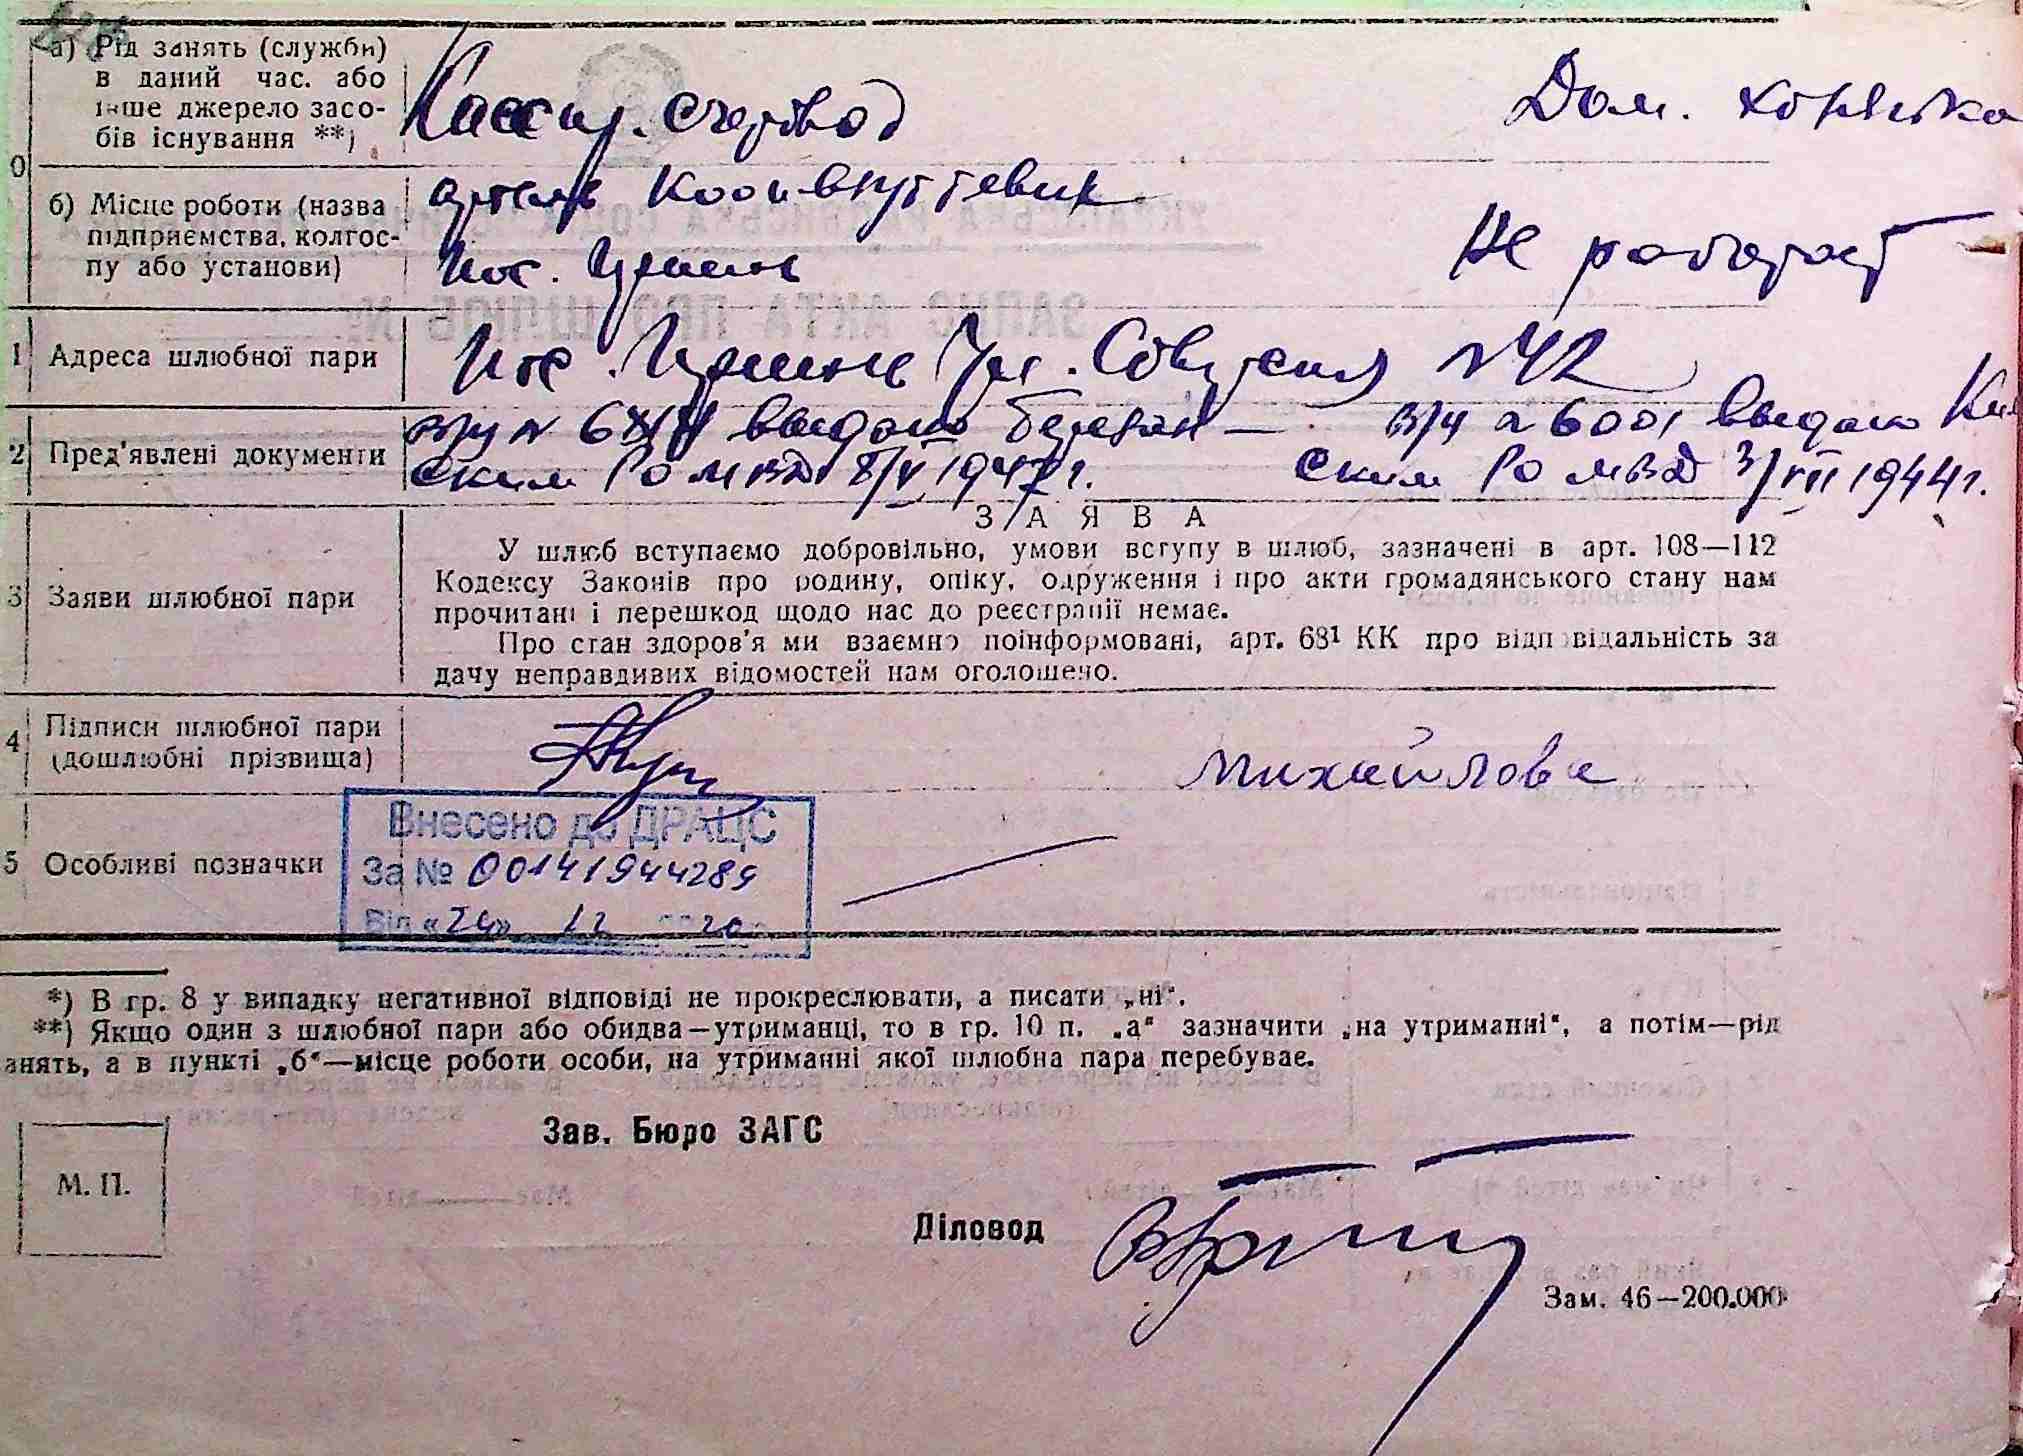 а) Рід занять (служби)
в даний час. або
інше джерело засо-
бів існування **)
Кассир. счетовод
Дом. хозяйка
0
б) Місце роботи (назва
підприємства, колгос-
пу або установи)
артель
пос. Ирпень
Не работает
1 Адреса шлюбної пари
пос. Ирпень Ул. Советская №42
2 Пред'явлені документи
в/у № выдано
ским РО МВД 8/V 1947г.
№ 6001 выдано
ским РО МВД 3/VII 1944г.
ЗАЯВА
3 Заяви шлюбної пари
У шлюб вступаємо добровільно, умови вступу в шлюб, зазначені в арт. 108—112
Кодексу Законів про родину, опіку, одруження і про акти громадянського стану нам
прочитані і перешкод щодо нас до реєстрації немає.
Про стан здоров'я ми взаємно поінформовані, арт. 68¹ КК про відповідальність за
дачу неправдивих відомостей нам оголошено.
4 Підписи шлюбної пари
(дошлюбні прізвища)
Михайлова
5 Особливі позначки
Внесено до ДРАЦС
За № 00141944289
Від «24» 12 2020
*) В гр. 8 у випадку негативної відповіді не прокреслювати, а писати „ні“.
**) Якщо один з шлюбної пари або обидва—утриманці, то в гр. 10 п. „а“ зазначити „на утриманні“, а потім—рід
анять, а в пункті „б“—місце роботи особи, на утриманні якої шлюбна пара перебуває.
Зав. Бюро ЗАГС
М. П.
Діловод
Зам. 46—200.000